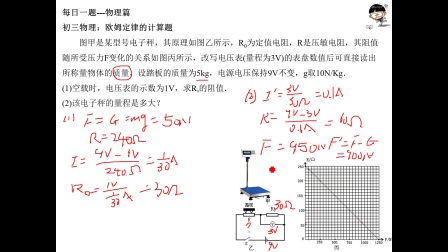 每日一题---物理篇
初三物理:欧姆定律的计算题
图甲是某型号电子秤,其原理如图乙所示,R₀为定值电阻,R是压敏电阻,其阻值
随所受压力F变化的关系如图丙所示,改写电压表(量程为3V)的表盘数值后可直接读出
所称量物体的质量,设踏板的质量为5kg,电源电压保持9V不变,g取10N/Kg.
(1)空载时,电压表的示数为1V,求R₀的阻值.
(2)该电子秤的量程是多大?
(1) F=G=mg=50N
R=240Ω
I=(9V-1V)/240Ω=1/30A
R₀=1V/(1/30A)=30Ω
(2) I'=3V/30Ω=0.1A
R=(9V-3V)/0.1A=60Ω
F=950N F'=F-G
=900N
R/Ω
300
250
200
150
100
50
0 250 500 750 1000 1250
F/N
30Ω
3V
9V
乙
丙